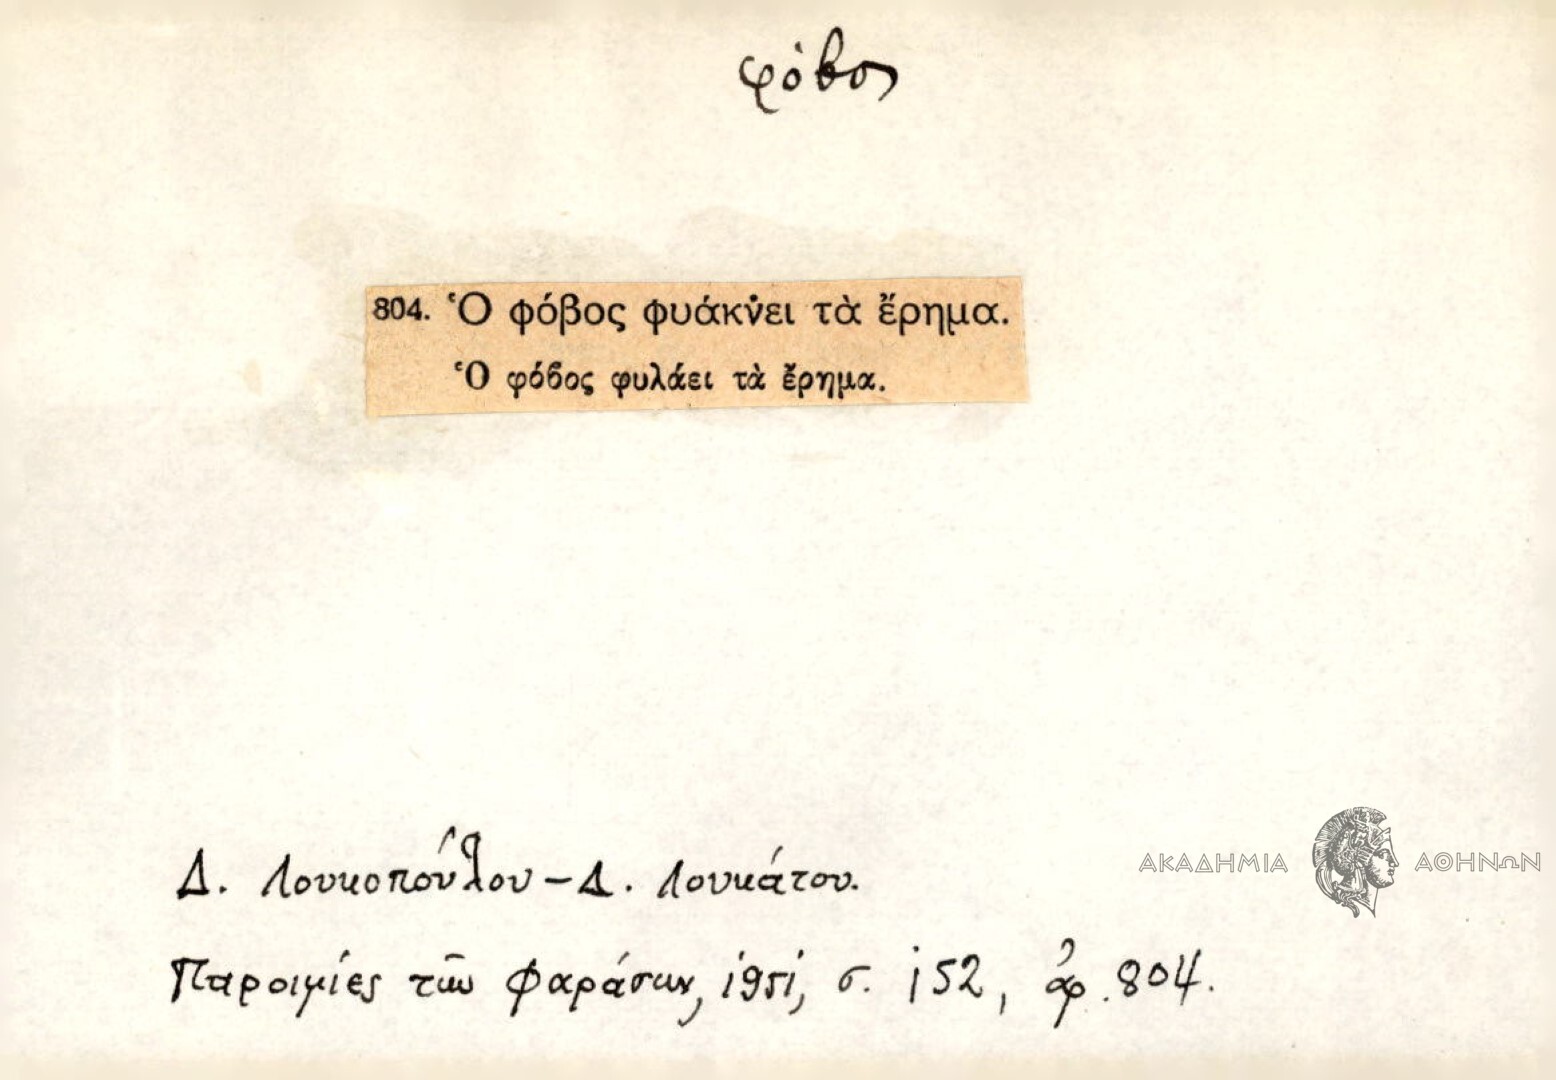 φόβος
804. Ὁ φόβος φυάκν̇ει τὰ ἔρημα.
Ὁ φόβος φυλάει τὰ ἔρημα.
Δ. Λουκοπούλου – Δ. Λουκάτου.
ΑΚΑΔΗΜΙΑ ΑΘΗΝΩΝ
Παροιμίες τῶν Φαράσων, 1951, σ. 152, ἀρ. 804.